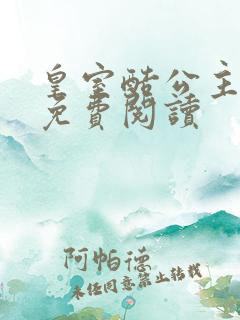 皇室酷公主
免費閱讀
阿帕德
未经同意禁止转载